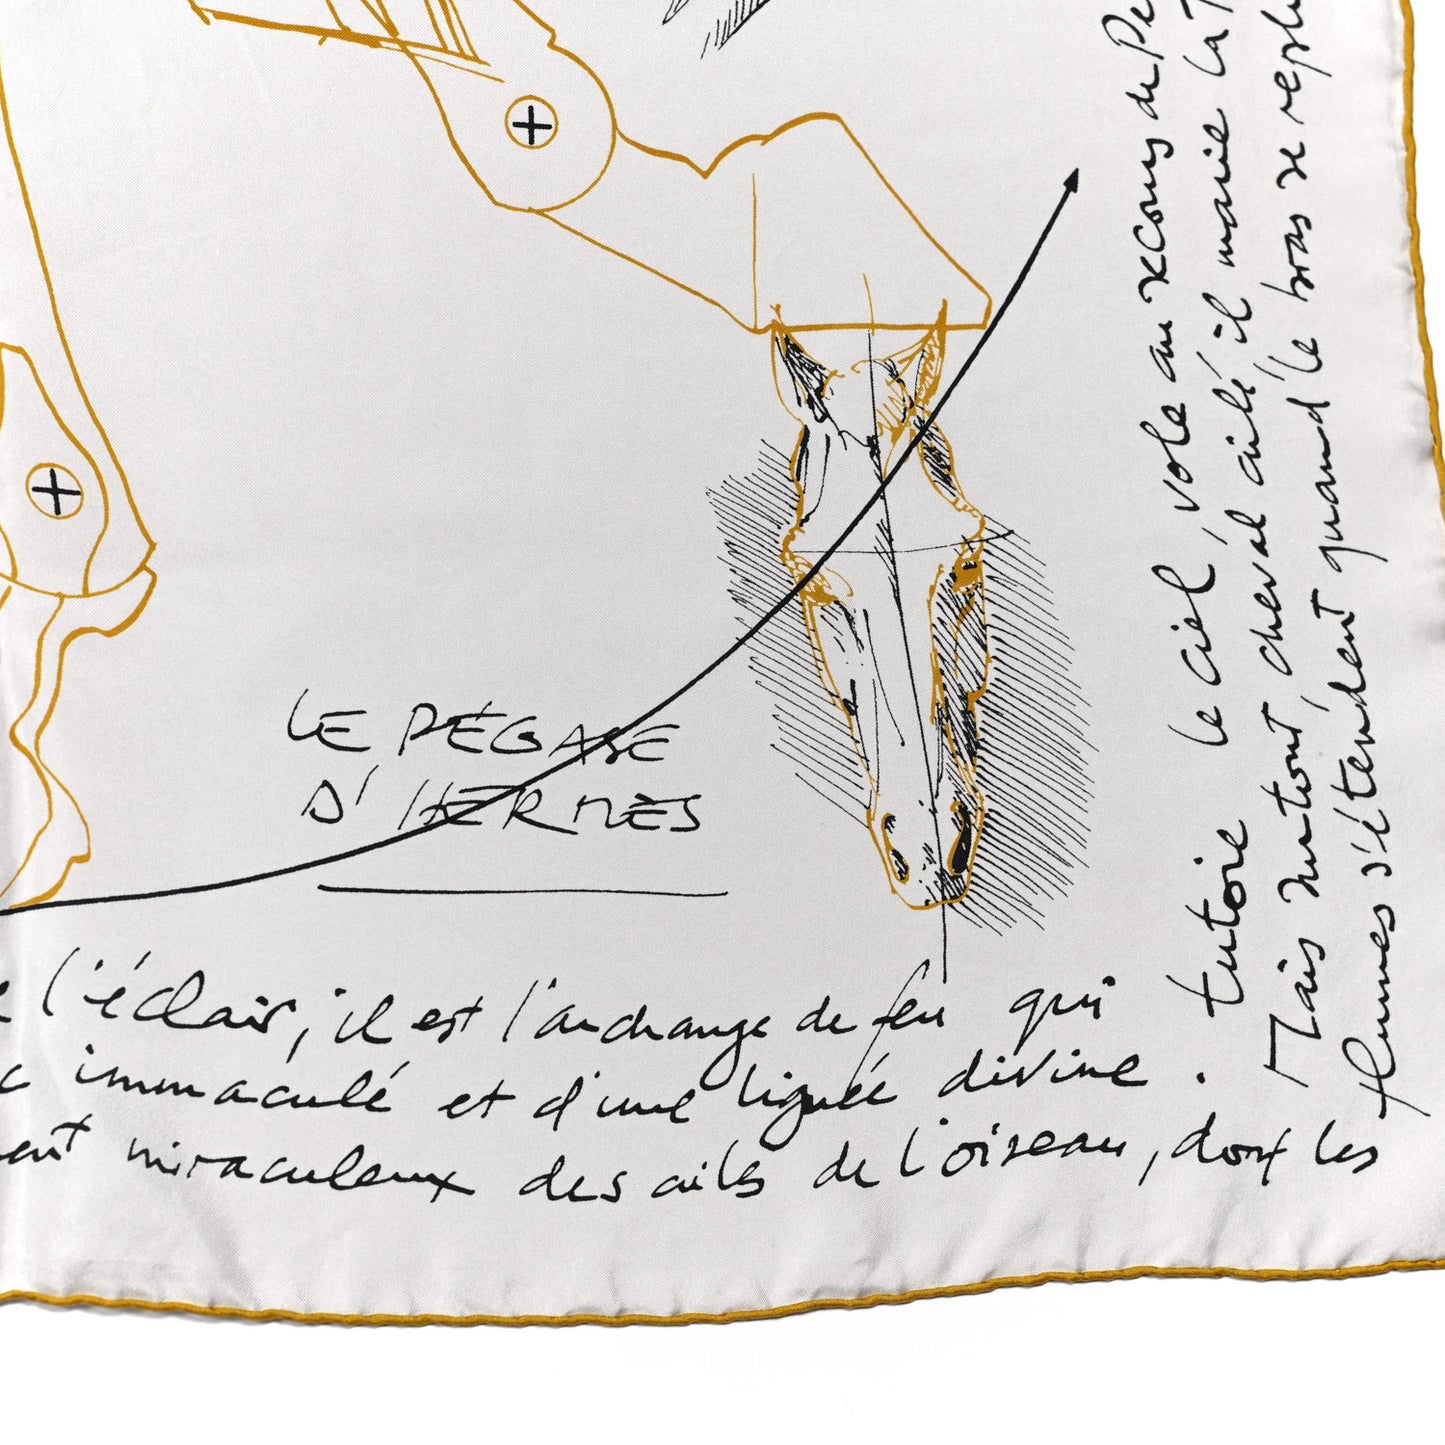 LE PÉGASE
D'HERMÈS
l'éclair, il est l'archange de feu qui
immaculé et d'une lignée divine.
miraculeux des ailes de l'oiseau, dont les
tutoie le ciel, vole au secours de
Mais surtout, cheval ailé il manie la
plumes s'étendent quand le bras se